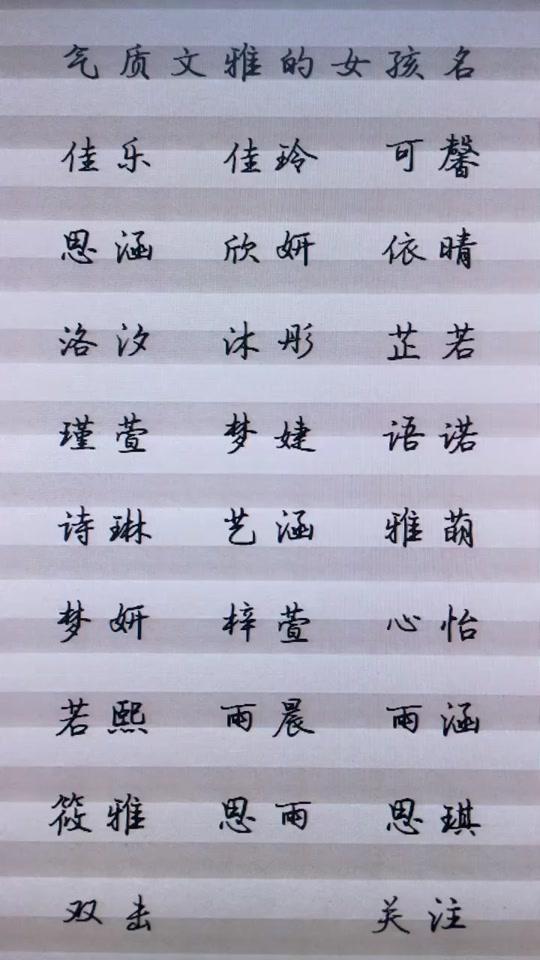 气质文雅的女孩名
佳乐 佳玲 可馨
思涵 欣妍 依晴
洛汐 沐彤 芷若
瑾萱 梦婕 语诺
诗琳 艺涵 雅萌
梦妍 梓萱 心怡
若熙 雨晨 雨涵
筱雅 思雨 思琪
双击 关注